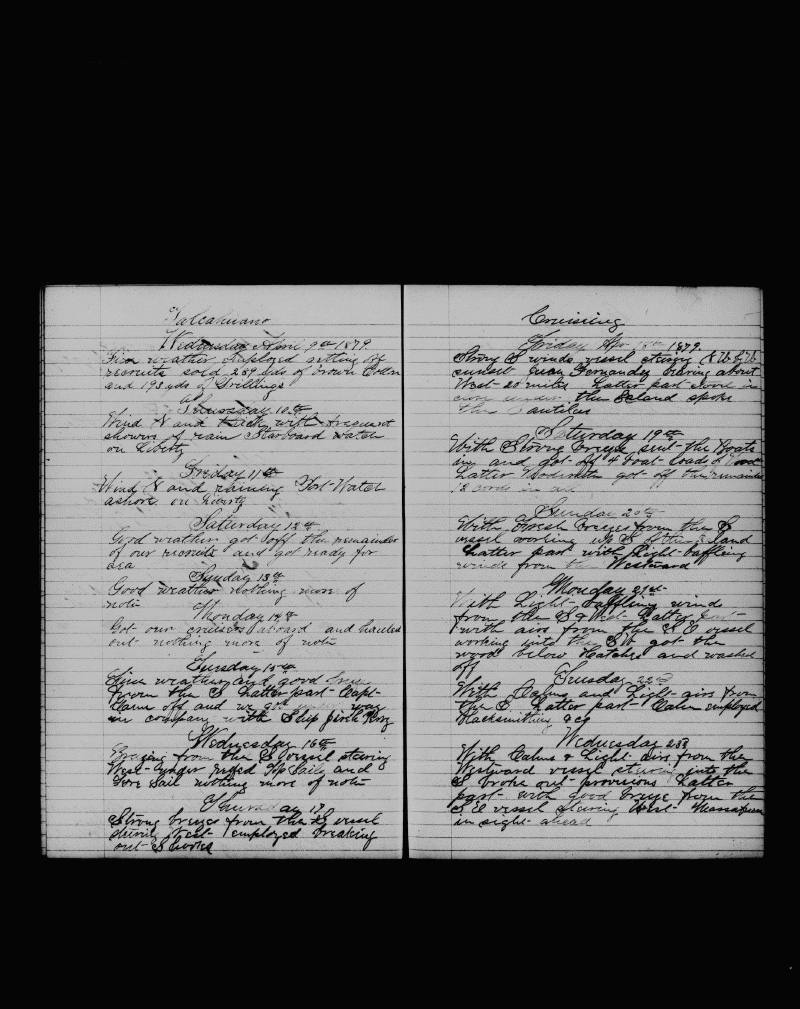 Talcahuano
Wednesday April 9th 1879
Fine weather employed getting off
recruits sold 289 yds of brown Cotton
and 193 yds of Drillings
Thursday 10th
Wind N and thick with frequent
showers of rain Starboard watch
on Liberty
Friday 11th
Wind N and raining Port Watch
ashore on Liberty
Saturday 12th
Good weather got off the remainder
of our recruits and got ready for
sea
Sunday 13th
Good weather nothing more of
note
Monday 14th
Got our cruisers aboard and hauled
out nothing more of note
Tuesday 15th
Fine weather and good
from the S Latter part Capt
Came off and we got under way
in company with Ship
Wednesday 16th
from the S vessel steering
West under reefed Top Sails and
Fore Sail nothing more of note
Thursday 17
Strong breezes from the S vessel
West employed breaking
out
Cruising
Friday Apr 18th 1879
Strong S winds vessel steering N W by W
sunset Juan Fernandez bearing about
West 20 miles Latter part stood in
close under the Island spoke
the
Saturday 19th
With Strong breeze sent the Boats
in and got off 4 boat loads of wood
Latter Moderate got off the remainder
12 cords in all
Sunday 20th
With fresh breezes from the S
vessel working up S of the Island
Latter part with Light baffling
winds from the Westward
Monday 21st
With Light baffling winds
from the S & West Latter part
with airs from the S E vessel
working into the S W got the
wood below Hatches and washed
off
Tuesday 22nd
With Calms and Light airs from
the S Latter part Calm employed
Blacksmithing &c &c
Wednesday 23d
With Calms & Light airs from the
Westward vessel steering into the
S broke out provisions Latter
part with good breeze from the
S E vessel steering West Massafuera
in sight ahead